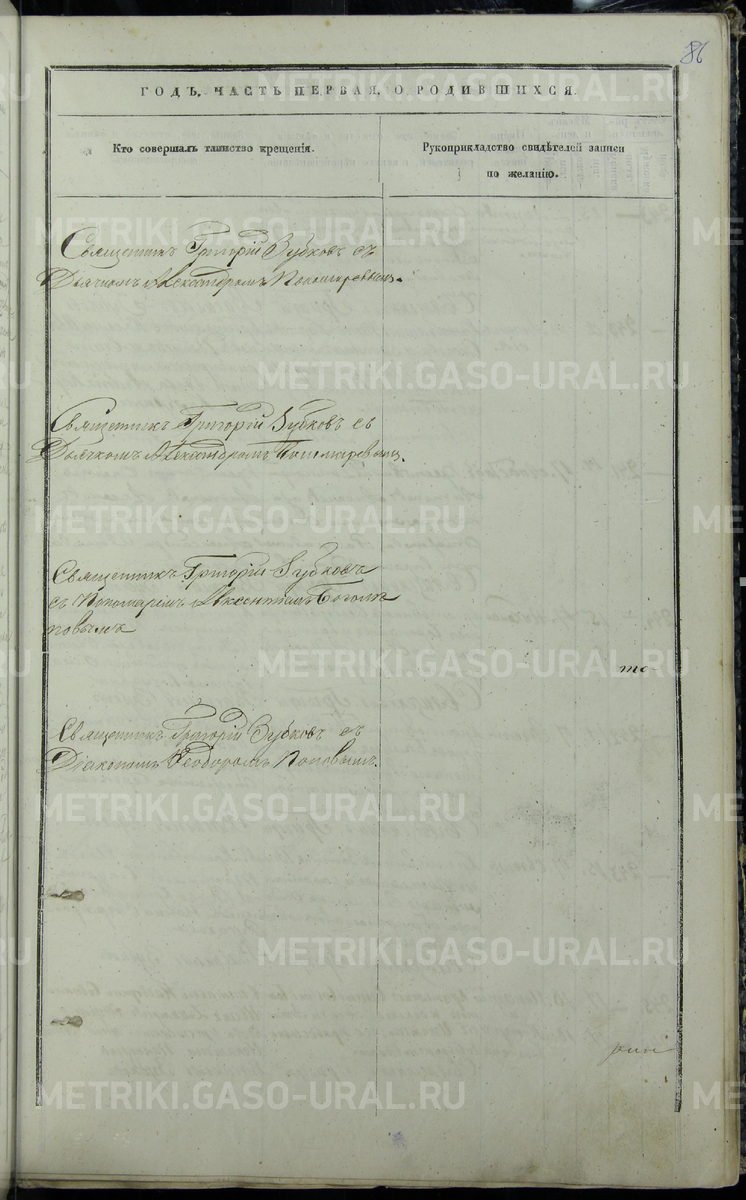 86
ГОДЪ, ЧАСТЬ ПЕРВАЯ, О РОДИВШИХСЯ.
Кто совершалъ таинство крещенія.
Рукоприкладство свидѣтелей записи
по желанію.
Священникъ Григорій Зубковъ съ
Дьячкомъ Александромъ Пономаревымъ.
Священникъ Григорій Зубковъ съ
Дьячкомъ Александромъ Пономаревымъ.
Священникъ Григорій Зубковъ
съ Пономаремъ Авксентіемъ Боголѣ
повымъ
те-
Священникъ Григорій Зубковъ съ
Діакономъ Ѳеодоромъ Поповымъ.
METRIKI.GASO-URAL.RU